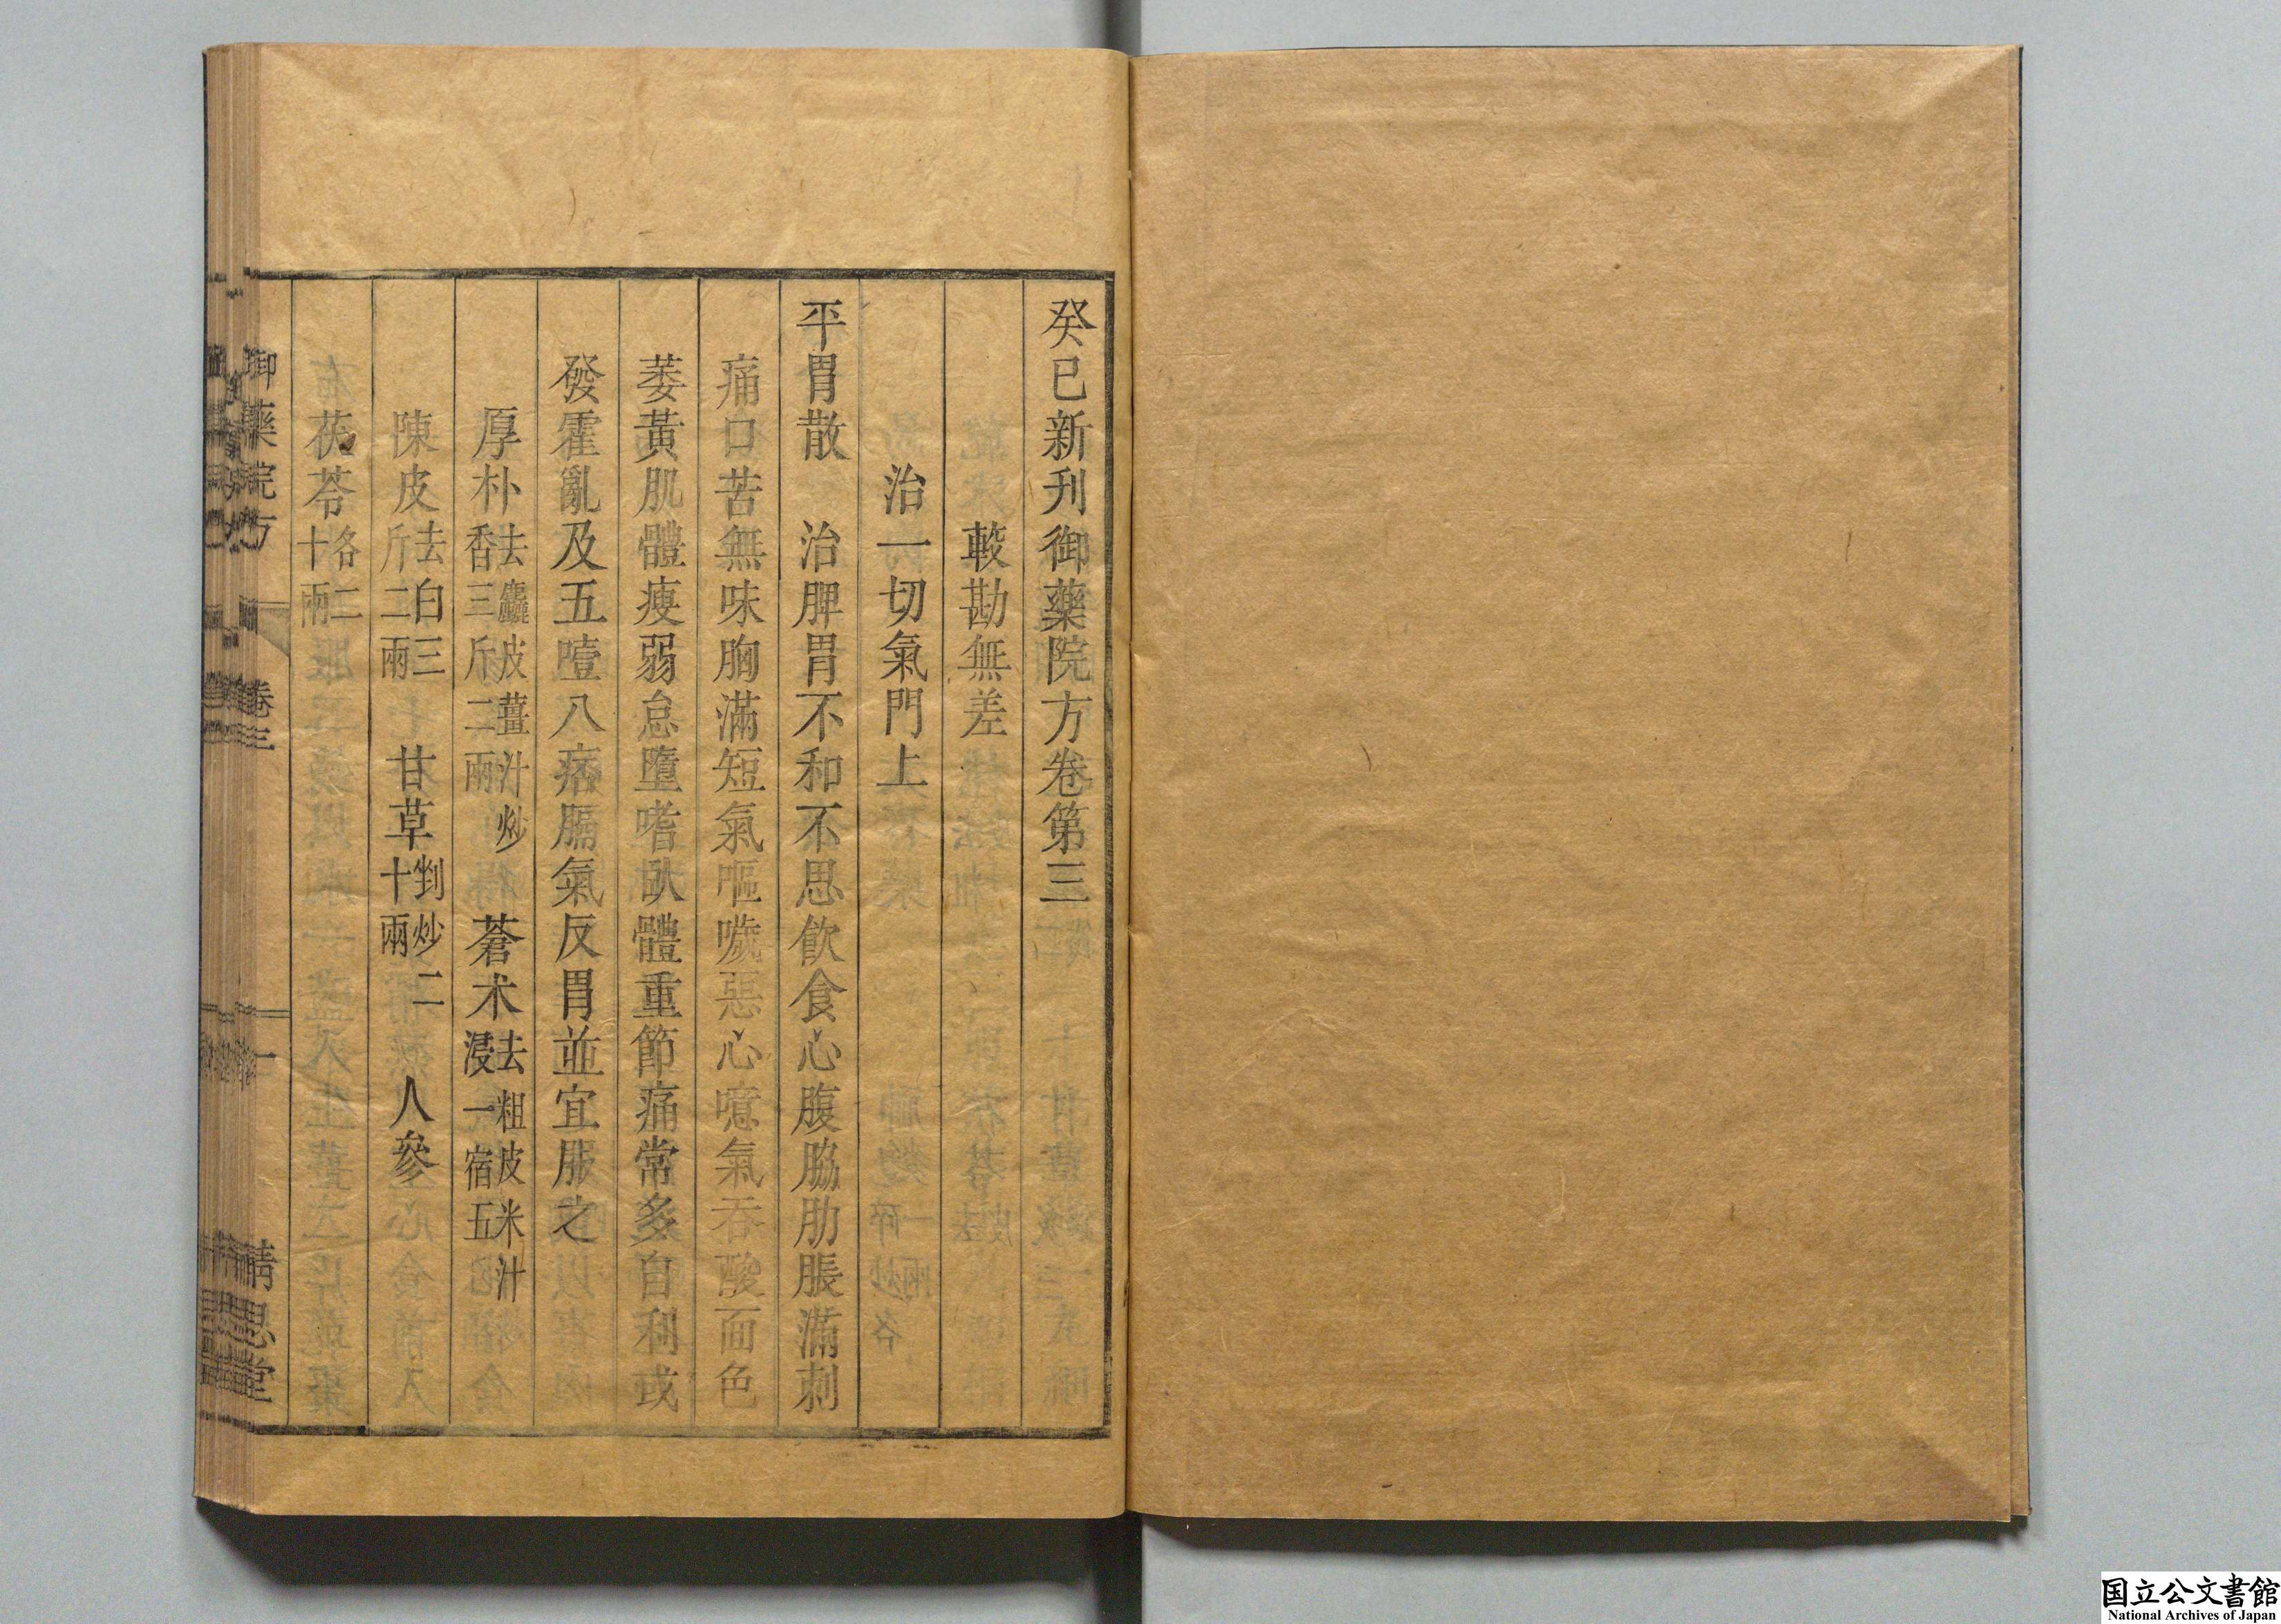 癸巳新刋御藥院方卷第三
較勘無差
治一切氣門上
平胃散　治脾胃不和不思飲食心腹脇肋脹滿刺
痛口苦無味胸滿短氣嘔噦惡心噫氣吞酸面色
萎黃肌體瘦弱怠墮嗜臥體重節痛常多自利或
發霍亂及五噎八痞膈氣反胃並宜服之
厚朴去麤皮薑汁炒香三斤二兩　蒼朮去粗皮米汁浸一宿五
陳皮去白三斤二兩　甘草剉炒二十兩　人參
茯苓各二十兩
御藥院方　卷三　一　精思堂
国立公文書館
National Archives of Japan